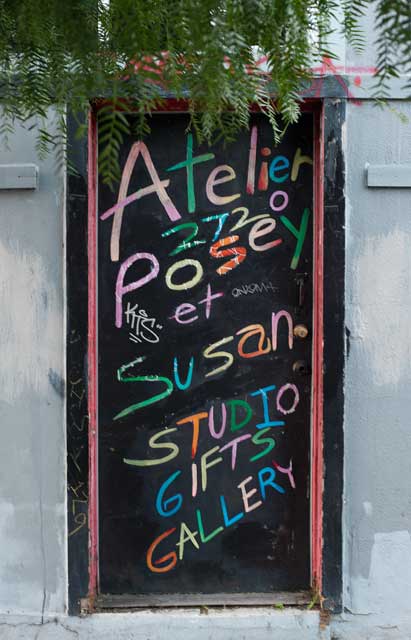 Atelier
2720
Posey
et
Susan
STUDIO
GIFTS
GALLERY
KTS